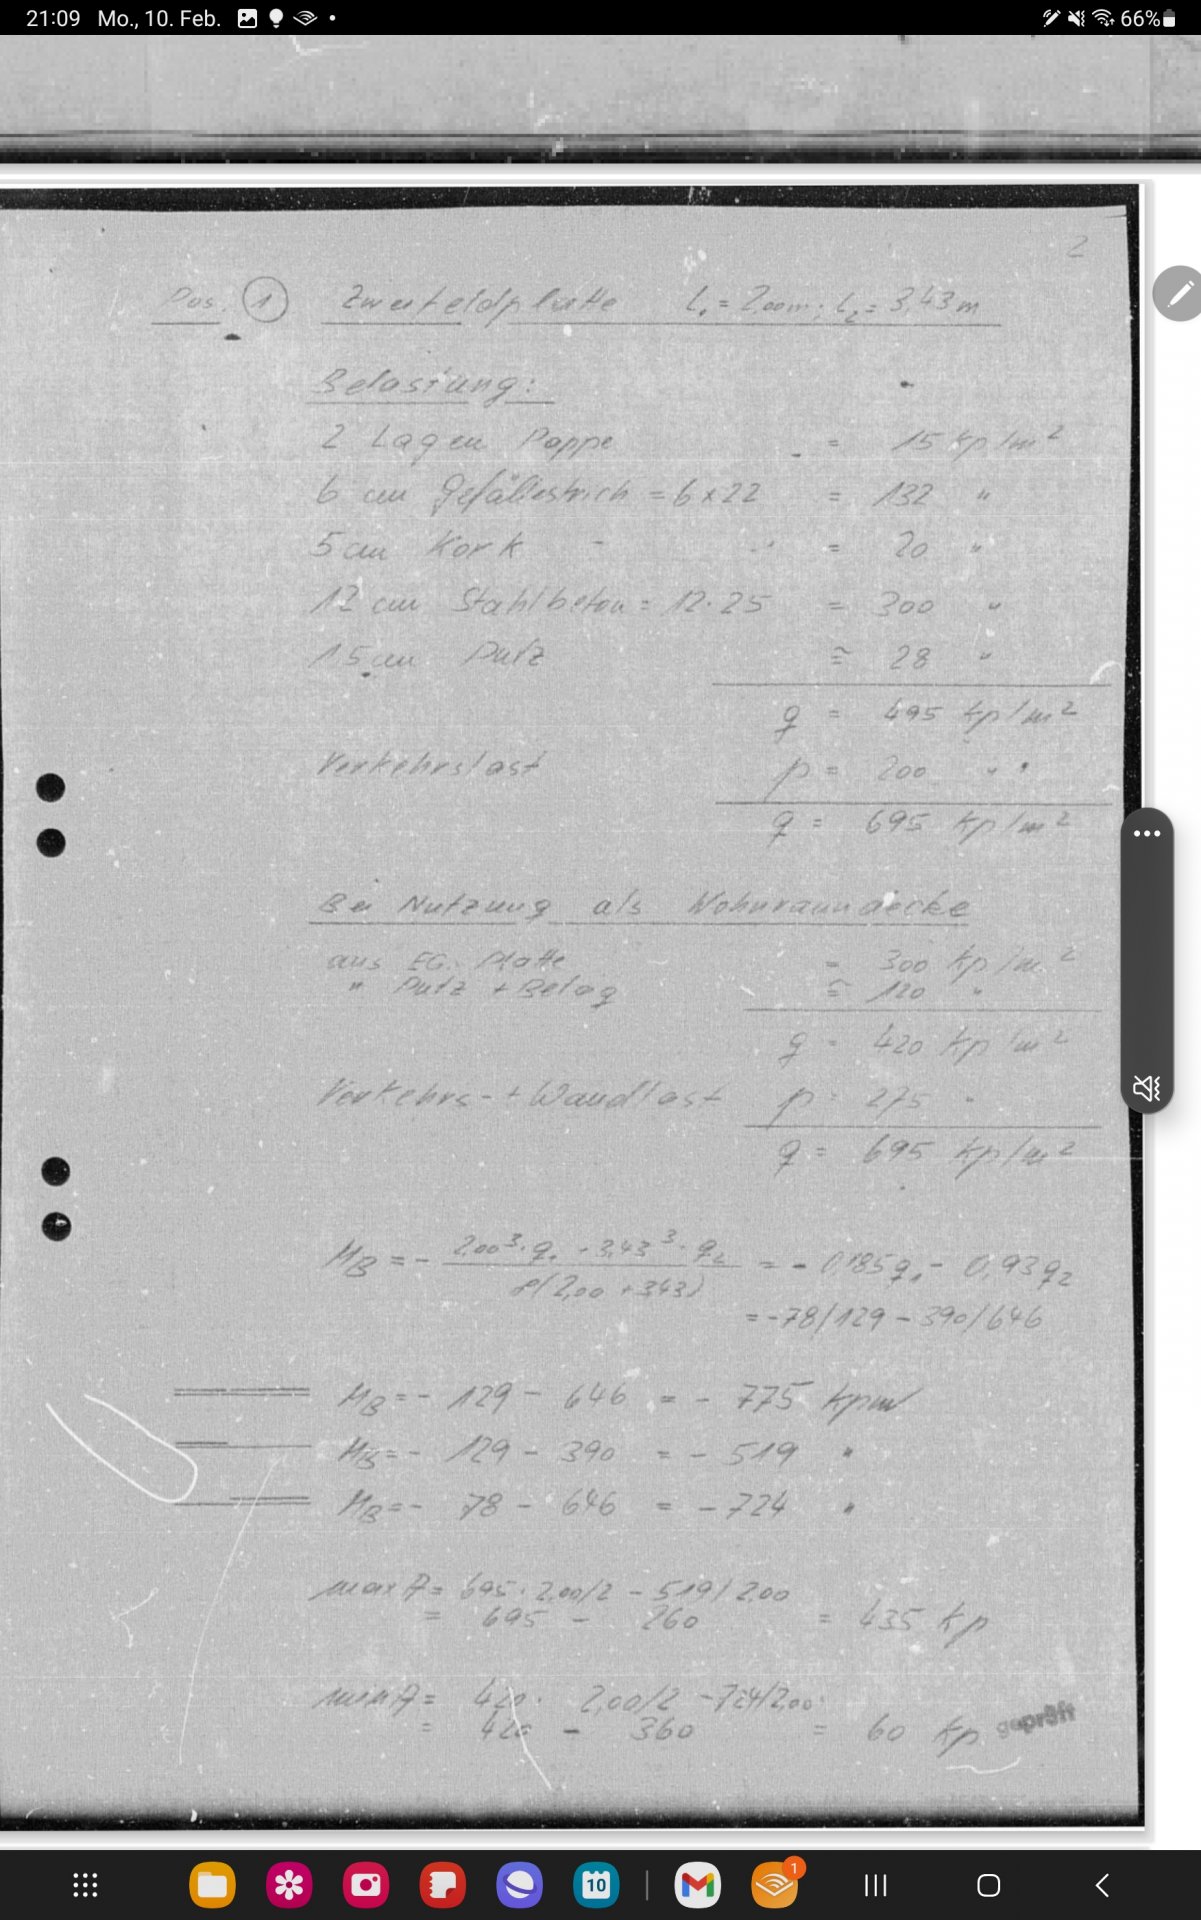 21:09 Mo., 10. Feb.
66%
2
Pos. 1 Zweifeldplatte L₁ = 2,00m; L₂ = 3,43 m
Belastung:
2 Lagen Pappe = 15 kp/m²
6 cm Gefällestrich = 6 x 22 = 132 "
5 cm Kork = 20 "
12 cm Stahlbeton = 12·25 = 300 "
1,5 cm Putz ≅ 28 "
g = 495 kp/m²
Verkehrslast p = 200 "
q = 695 kp/m²
Bei Nutzung als Wohnraumdecke
aus EG. Platte = 300 kp/m²
" Putz + Belag ≅ 120 "
g = 420 kp/m²
Verkehrs- + Wandlast p = 275 "
q = 695 kp/m²
M_B = - (2,00³·q₁ - 3,43³·q₂) / 8(2,00 + 3,43) = - 0,185q₁ - 0,93q₂
= -78/129 - 390/646
M_B = - 129 - 646 = - 775 kpm
M_B = - 129 - 390 = - 519 "
M_B = - 78 - 646 = - 724 "
max A = 695 · 2,00/2 - 519/2,00
= 695 - 260 = 435 kp
min A = 420 · 2,00/2 - 724/2,00
= 420 - 360 = 60 kp
geprüft
10
1